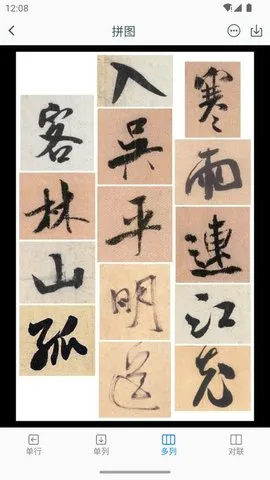 12:08
拼图
寒雨連江
入吳平明送
客林山孤
单行
单列
多列
对联